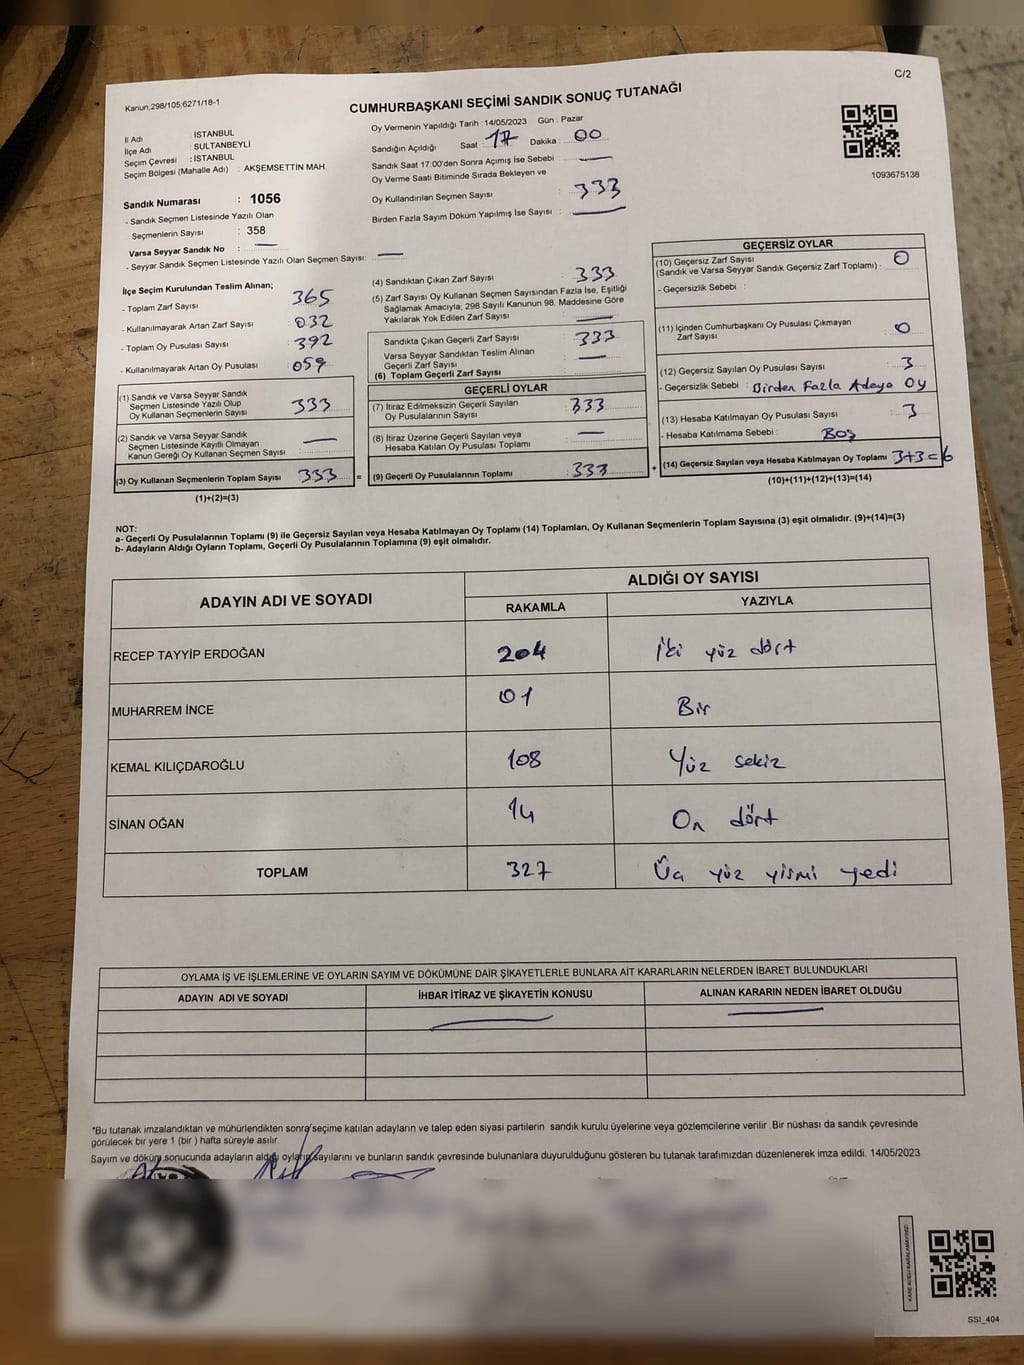 C/2
Kanun;298/105;6271/18-1
CUMHURBAŞKANI SEÇİMİ SANDIK SONUÇ TUTANAĞI
İl Adı : İSTANBUL
İlçe Adı : SULTANBEYLİ
Seçim Çevresi : İSTANBUL
Seçim Bölgesi (Mahalle Adı) : AKŞEMSETTİN MAH.
Sandık Numarası : 1056
- Sandık Seçmen Listesinde Yazılı Olan
Seçmenlerin Sayısı : 358
Varsa Seyyar Sandık No : —
- Seyyar Sandık Seçmen Listesinde Yazılı Olan Seçmen Sayısı: —
Oy Vermenin Yapıldığı Tarih : 14/05/2023 Gün : Pazar
Sandığın Açıldığı Saat 17 Dakika : 00
Sandık Saat 17:00'den Sonra Açımış İse Sebebi : —
Oy Verme Saati Bitiminde Sırada Bekleyen ve
Oy Kullandırılan Seçmen Sayısı : 333
Birden Fazla Sayım Döküm Yapılmış İse Sayısı : —
1093675138
İlçe Seçim Kurulundan Teslim Alınan;
- Toplam Zarf Sayısı : 365
- Kullanılmayarak Artan Zarf Sayısı : 032
- Toplam Oy Pusulası Sayısı : 392
- Kullanılmayarak Artan Oy Pusulası : 059
(1) Sandık ve Varsa Seyyar Sandık
Seçmen Listesinde Yazılı Olup
Oy Kullanan Seçmenlerin Sayısı : 333
(2) Sandık ve Varsa Seyyar Sandık
Seçmen Listesinde Kayıtlı Olmayan
Kanun Gereği Oy Kullanan Seçmen Sayısı : —
(3) Oy Kullanan Seçmenlerin Toplam Sayısı : 333 =
(1)+(2)=(3)
(4) Sandıktan Çıkan Zarf Sayısı : 333
(5) Zarf Sayısı Oy Kullanan Seçmen Sayısından Fazla İse, Eşitliği
Sağlamak Amacıyla; 298 Sayılı Kanunun 98. Maddesine Göre
Yakılarak Yok Edilen Zarf Sayısı : —
Sandıkta Çıkan Geçerli Zarf Sayısı : 333
Varsa Seyyar Sandıktan Teslim Alınan
Geçerli Zarf Sayısı : —
(6) Toplam Geçerli Zarf Sayısı
GEÇERLİ OYLAR
(7) İtiraz Edilmeksizin Geçerli Sayılan
Oy Pusulalarının Sayısı : 333
(8) İtiraz Üzerine Geçerli Sayılan veya
Hesaba Katılan Oy Pusulası Toplamı : —
(9) Geçerli Oy Pusulalarının Toplamı : 333 +
GEÇERSİZ OYLAR
(10) Geçersiz Zarf Sayısı
(Sandık ve Varsa Seyyar Sandık Geçersiz Zarf Toplamı) : 0
- Geçersizlik Sebebi :
(11) İçinden Cumhurbaşkanı Oy Pusulası Çıkmayan
Zarf Sayısı : 0
(12) Geçersiz Sayılan Oy Pusulası Sayısı : 3
- Geçersizlik Sebebi : Birden Fazla Adaya Oy
(13) Hesaba Katılmayan Oy Pusulası Sayısı : 3
- Hesaba Katılmama Sebebi : Boş
(14) Geçersiz Sayılan veya Hesaba Katılmayan Oy Toplamı 3+3=6
(10)+(11)+(12)+(13)=(14)
NOT:
a- Geçerli Oy Pusulalarının Toplamı (9) ile Geçersiz Sayılan veya Hesaba Katılmayan Oy Toplamı (14) Toplamları, Oy Kullanan Seçmenlerin Toplam Sayısına (3) eşit olmalıdır. (9)+(14)=(3)
b- Adayların Aldığı Oyların Toplamı, Geçerli Oy Pusulalarının Toplamına (9) eşit olmalıdır.
ADAYIN ADI VE SOYADI ALDIĞI OY SAYISI
RAKAMLA YAZIYLA
RECEP TAYYİP ERDOĞAN 204 İki yüz dört
MUHARREM İNCE 01 Bir
KEMAL KILIÇDAROĞLU 108 Yüz sekiz
SİNAN OĞAN 14 On dört
TOPLAM 327 Üç yüz yirmi yedi
OYLAMA İŞ VE İŞLEMLERİNE VE OYLARIN SAYIM VE DÖKÜMÜNE DAİR ŞİKAYETLERLE BUNLARA AİT KARARLARIN NELERDEN İBARET BULUNDUKLARI
ADAYIN ADI VE SOYADI İHBAR İTİRAZ VE ŞİKAYETİN KONUSU ALINAN KARARIN NEDEN İBARET OLDUĞU
*Bu tutanak imzalandıktan ve mühürlendikten sonra seçime katılan adayların ve talep eden siyasi partilerin sandık kurulu üyelerine veya gözlemcilerine verilir .Bir nüshası da sandık çevresinde
görülecek bir yere 1 (bir ) hafta süreyle asılır.
Sayım ve döküm sonucunda adayların aldığı oyların sayılarını ve bunların sandık çevresinde bulunanlara duyurulduğunu gösteren bu tutanak tarafımızdan düzenlenerek imza edildi. 14/05/2023
KARE KODU KARALAMAYINIZ!
SSI_404